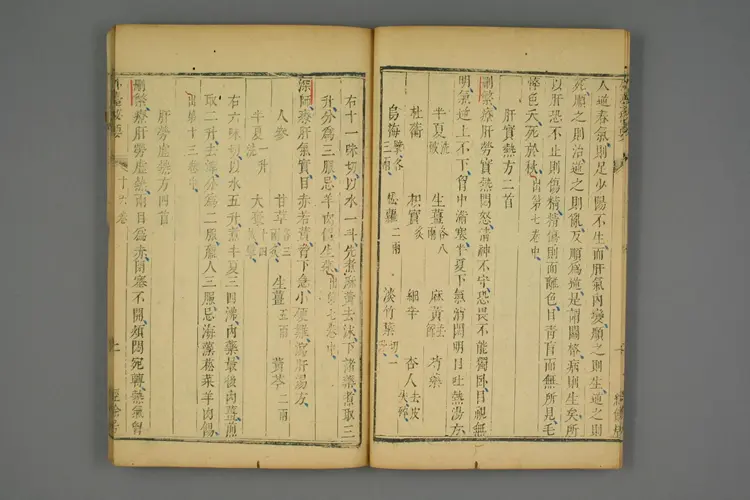 人逆春氣則足少陽不生而肝氣內變順之則生逆之則
死順之則治逆之則亂反順為逆是謂關格病則生矣所
以肝恐不止則傷精精傷則面離色目青盲而無所見毛
悴色夭死於秋出第七卷中
肝實熱方二首
刪繁療肝勞實熱悶怒精神不守恐畏不能獨臥目視無
明氣逆上不下胸中滿塞半夏下氣消悶明目吐熱湯方
半夏洗 生薑各八兩 麻黃去節 芍藥
杜蘅 枳實炙 細辛 杏人去皮尖熬
烏梅擘各三兩 二兩 淡竹葉切一
右十一味切以水一斗先煮麻黃去沫下諸藥煮取三
升分為三服忌羊肉餳生菜出第七卷中
深師療肝氣實目赤若黃脅下急小便難瀉肝湯方
人參 甘草各三兩炙 生薑五兩 黃芩二兩
半夏一升洗 大棗十四枚擘
右六味切以水五升煮半夏三四沸內藥後內薑煎
取二升去滓分為二服羸人三服忌海藻菘菜羊肉餳
出第十三卷中
肝勞虛熱方四首
刪繁療肝勞虛熱兩目為赤閉塞不開煩悶宛轉熱氣胸
外臺秘要
十六卷